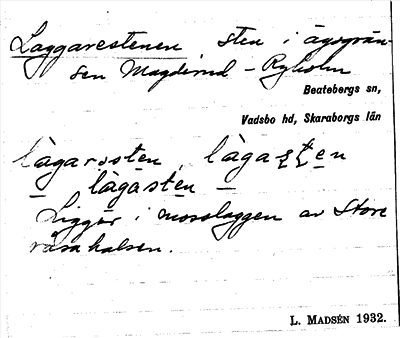 Laggarestenen sten i ägogrän-
sen Magderud - Ryholm
Beatebergs sn,
Vadsbo hd, Skaraborgs län
làgarsten, làgasten
làgasten
Ligger i mosslaggen av Store
råsa halsen.
L. MADSÉN 1932.